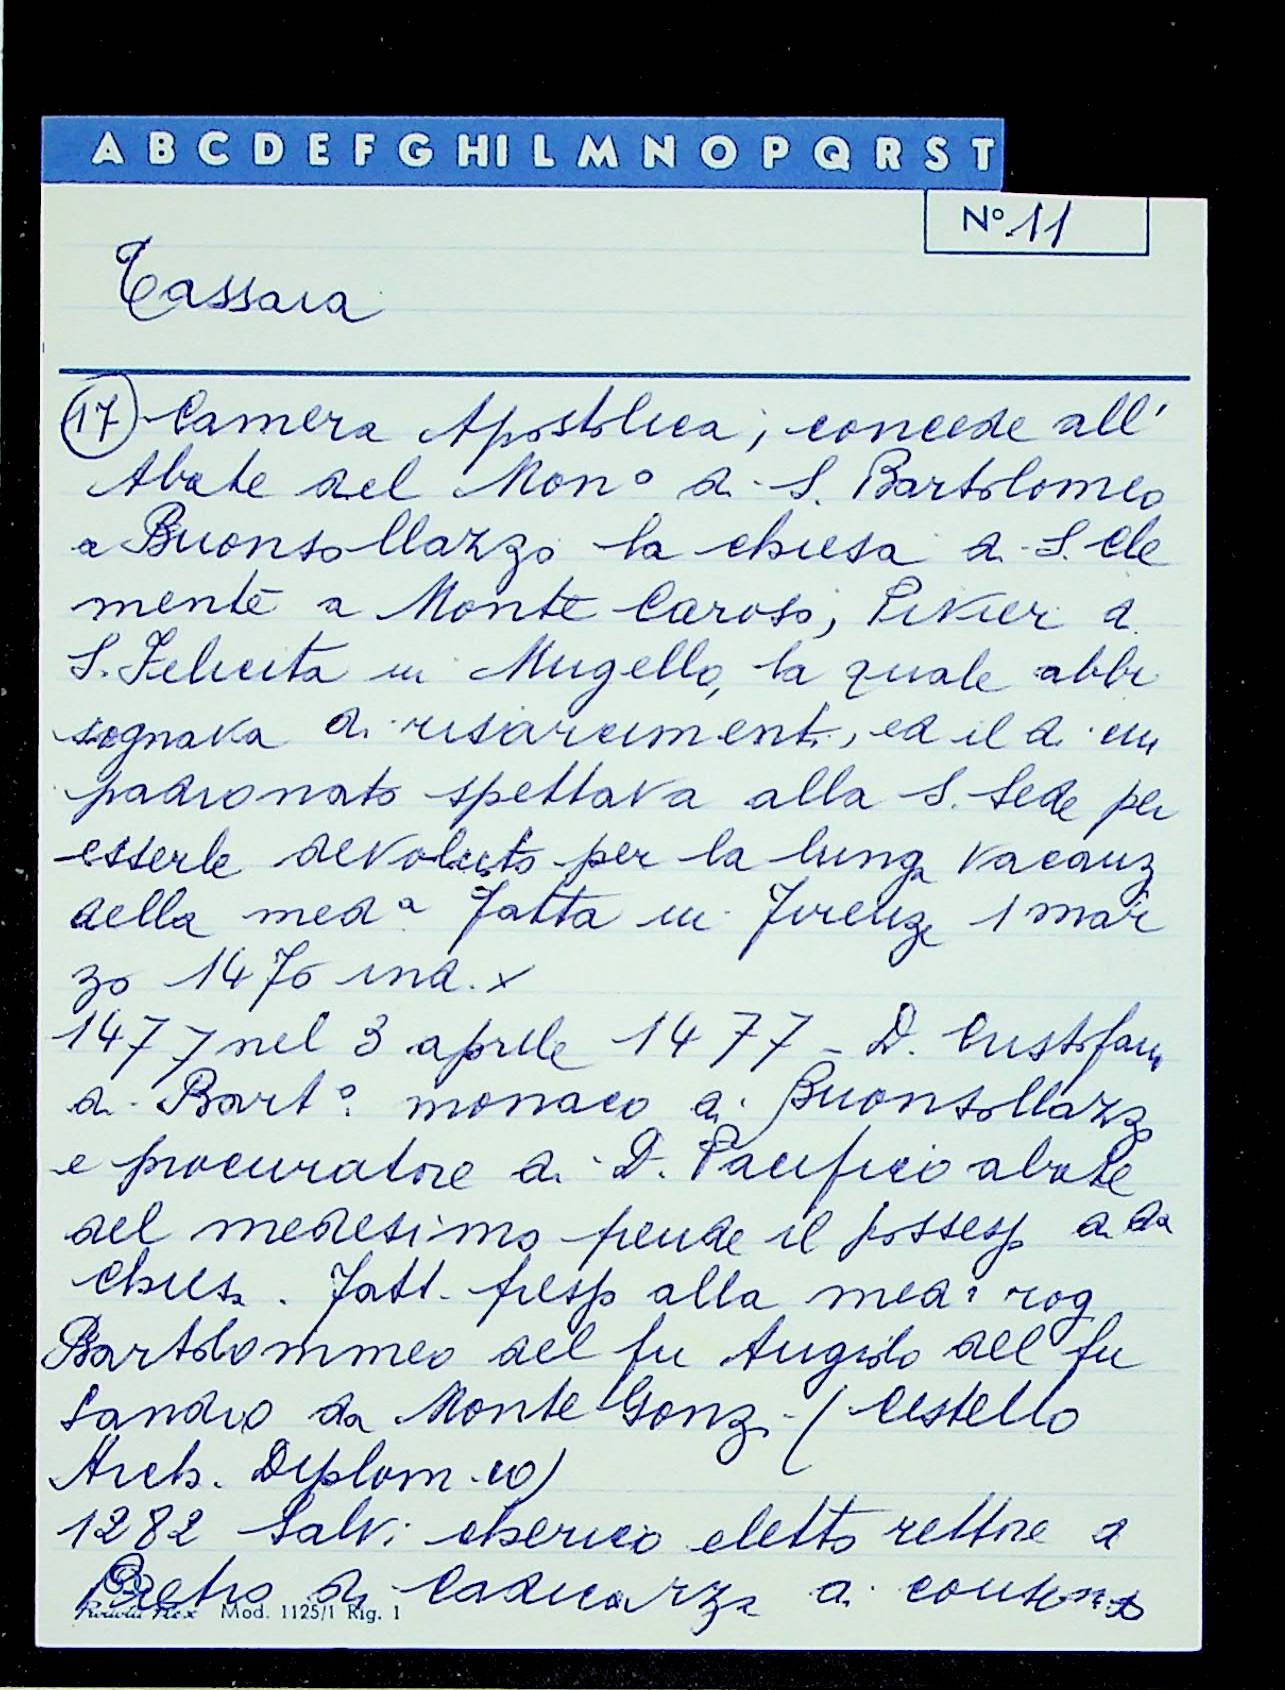 A B C D E F G HI L M N O P Q R S T
N° 11
Tassaia
17 - Camera Apostolica; concede all'
Abate del Mon° di S. Bartolomeo
a Buonsollazzo la chiesa di S. Cle
mente a Monte Caroso, Pivier di
S. Felicita in Mugello, la quale abbi
sognava di risarcimenti, ed il di cui
padronato spettava alla S. Sede per
esserle devoluto per la lunga vacanz
della med.a Fatta in Firenze 1 mar
zo 1476 ind. X
1477 nel 3 aprile 1477 - D. Cristofano
di Bart° monaco di Buonsollazzo
e procuratore di D. Pacifico abate
del medesimo prende il possesso di da
chiesa. Fatt. presso alla med.a rog
Bartolommeo del fu Angiolo del fu
Sandro da Monte Gonzi (Cestello
Arch. Diplom.co)
1282 Salvi cherico eletto rettore di
Pietro di Casicarza di consenso
Mod. 1125/1 Rig. 1